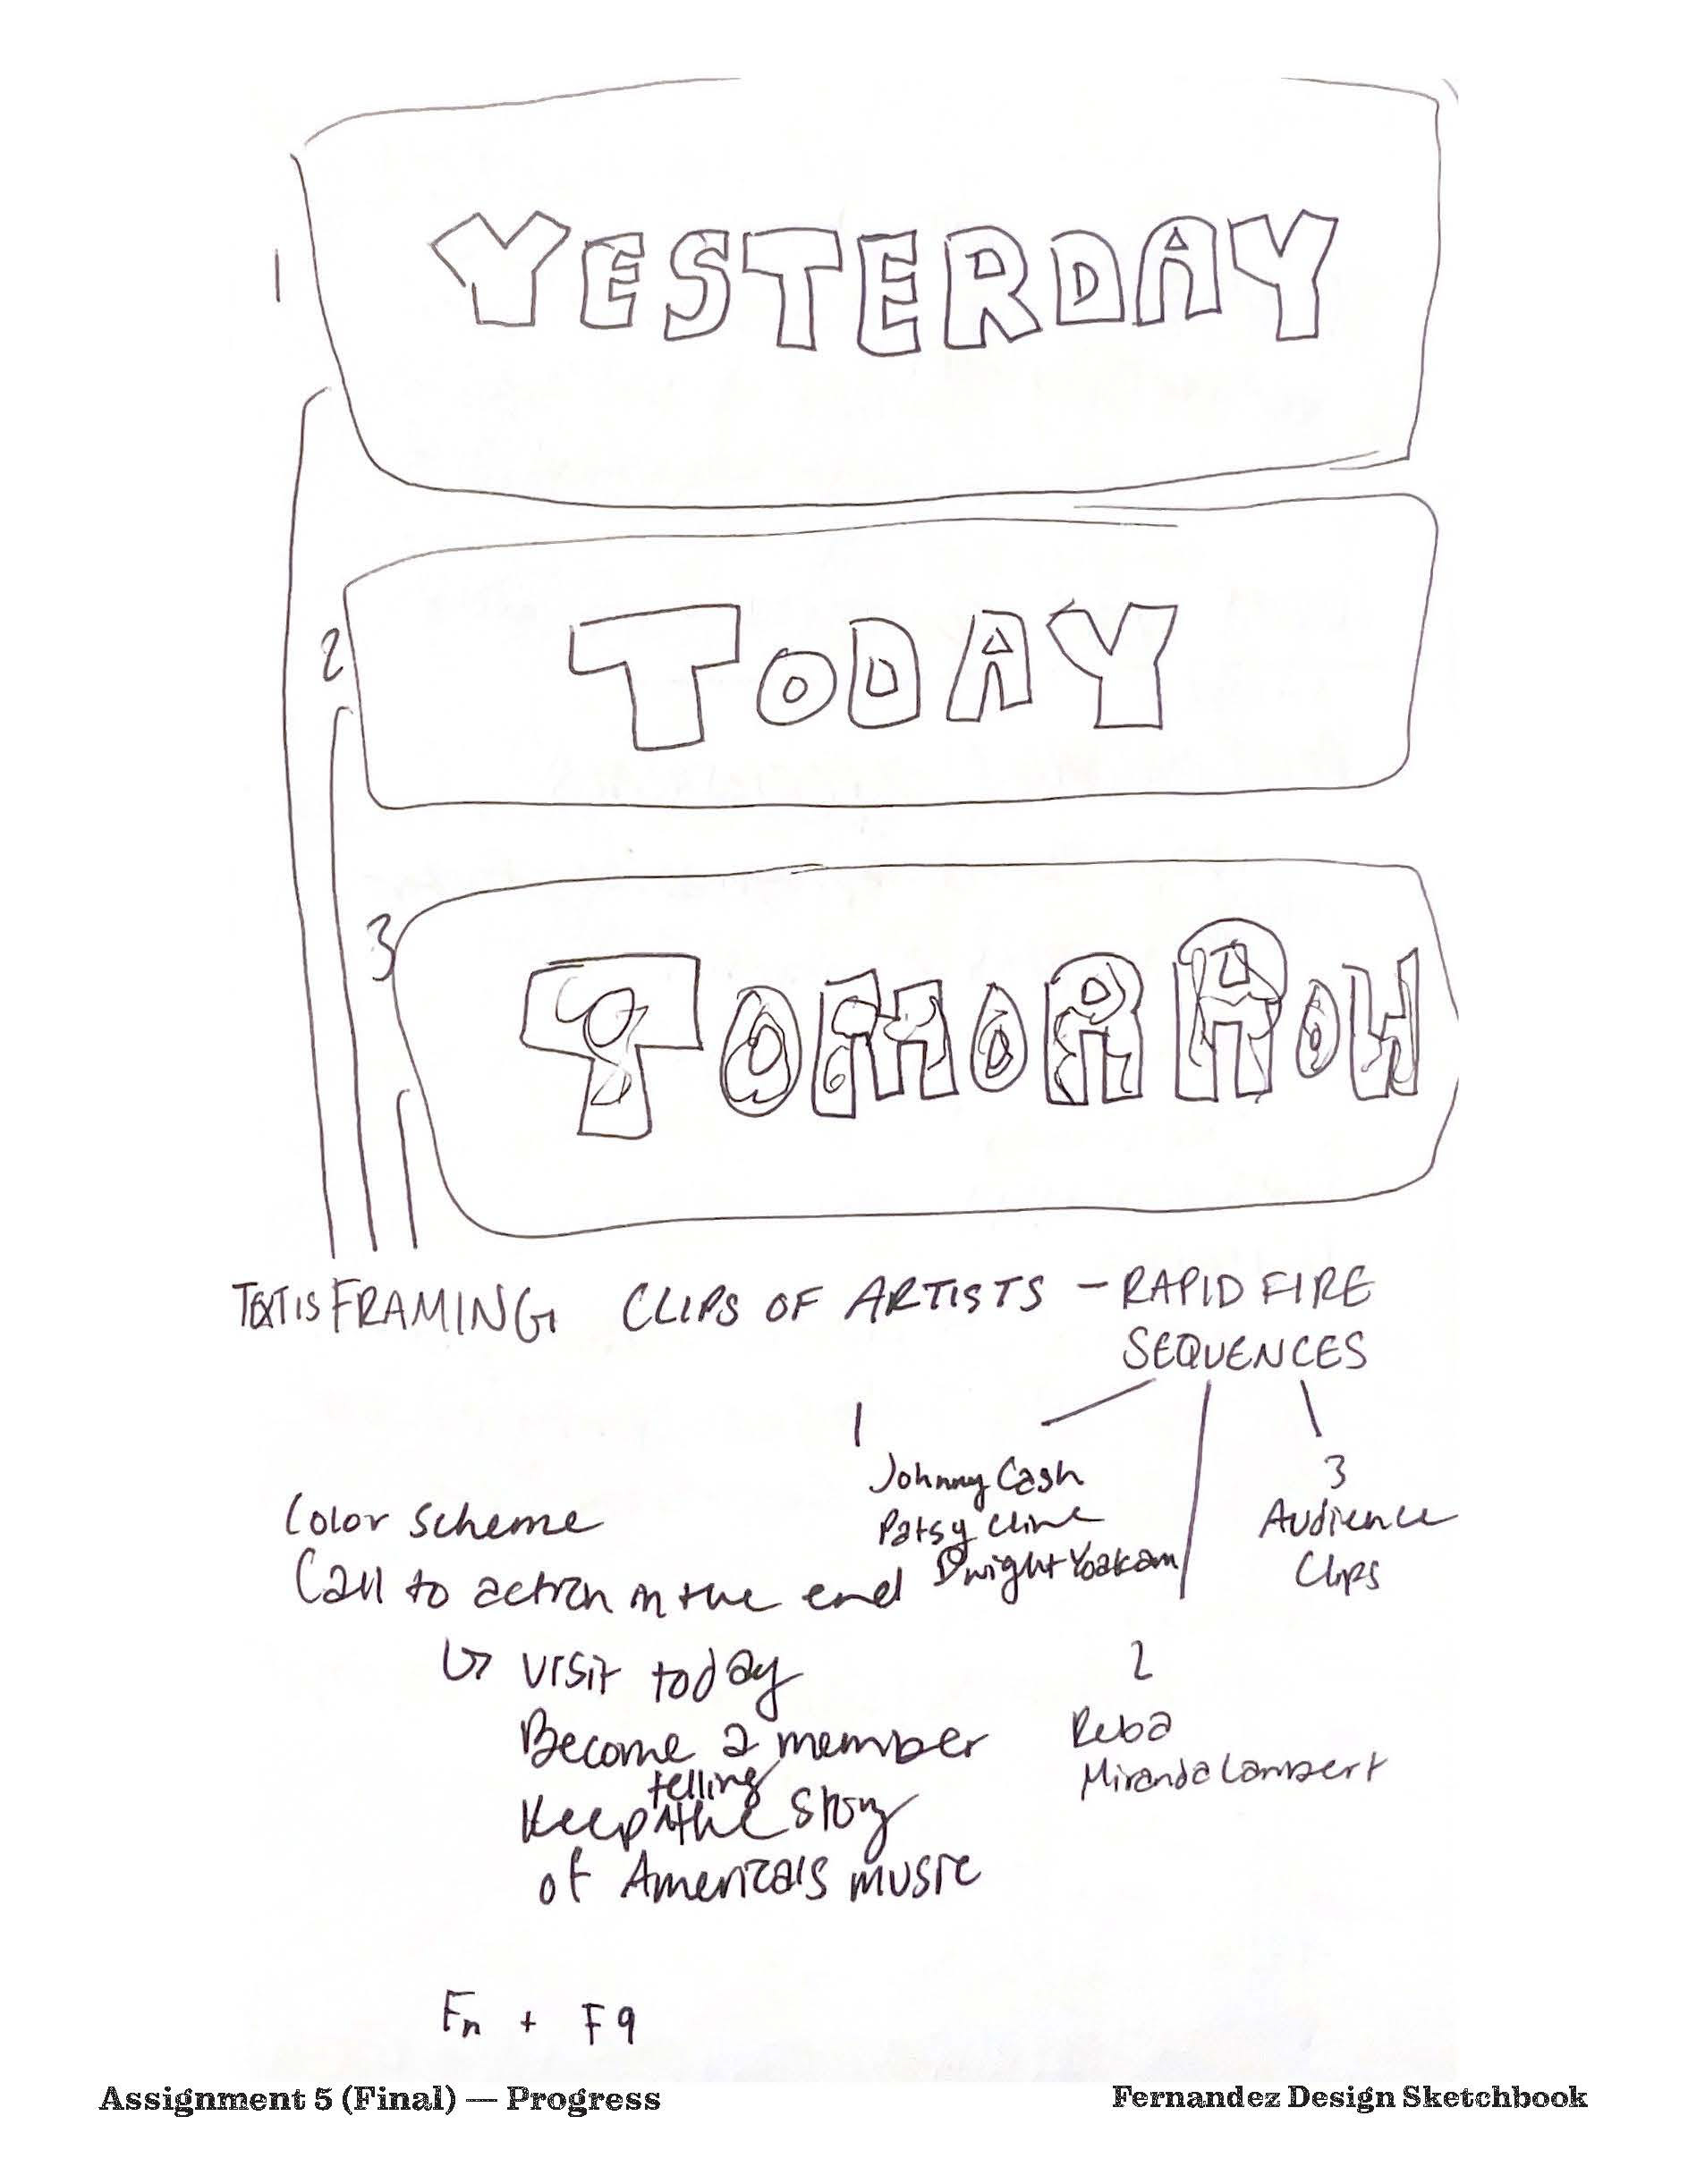 1
YESTERDAY
2
TODAY
3
TOMORROW
TEXT IS FRAMING CLIPS OF ARTISTS — RAPID FIRE
SEQUENCES
1
Johnny Cash
Patsy Cline
Dwight Yoakam
3
Audience
Clips
2
Reba
Miranda Lambert
Color scheme
Call to action in the end
↳ visit today
Become a member
Keep telling the story
of America's music
Fn + F9
Assignment 5 (Final) — Progress
Fernandez Design Sketchbook